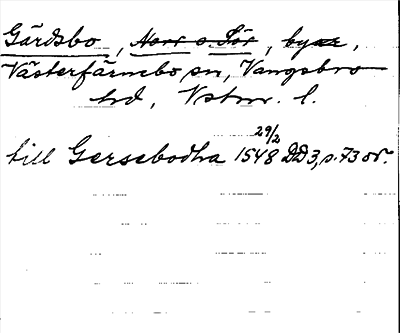 Gärdsbo, Norr o. Sör, byar,
Västerfärnebo sn, Vangsbro
hd, Vstm. l.
29/2
till Gersebodha 1548 DD3, s. 73 or.